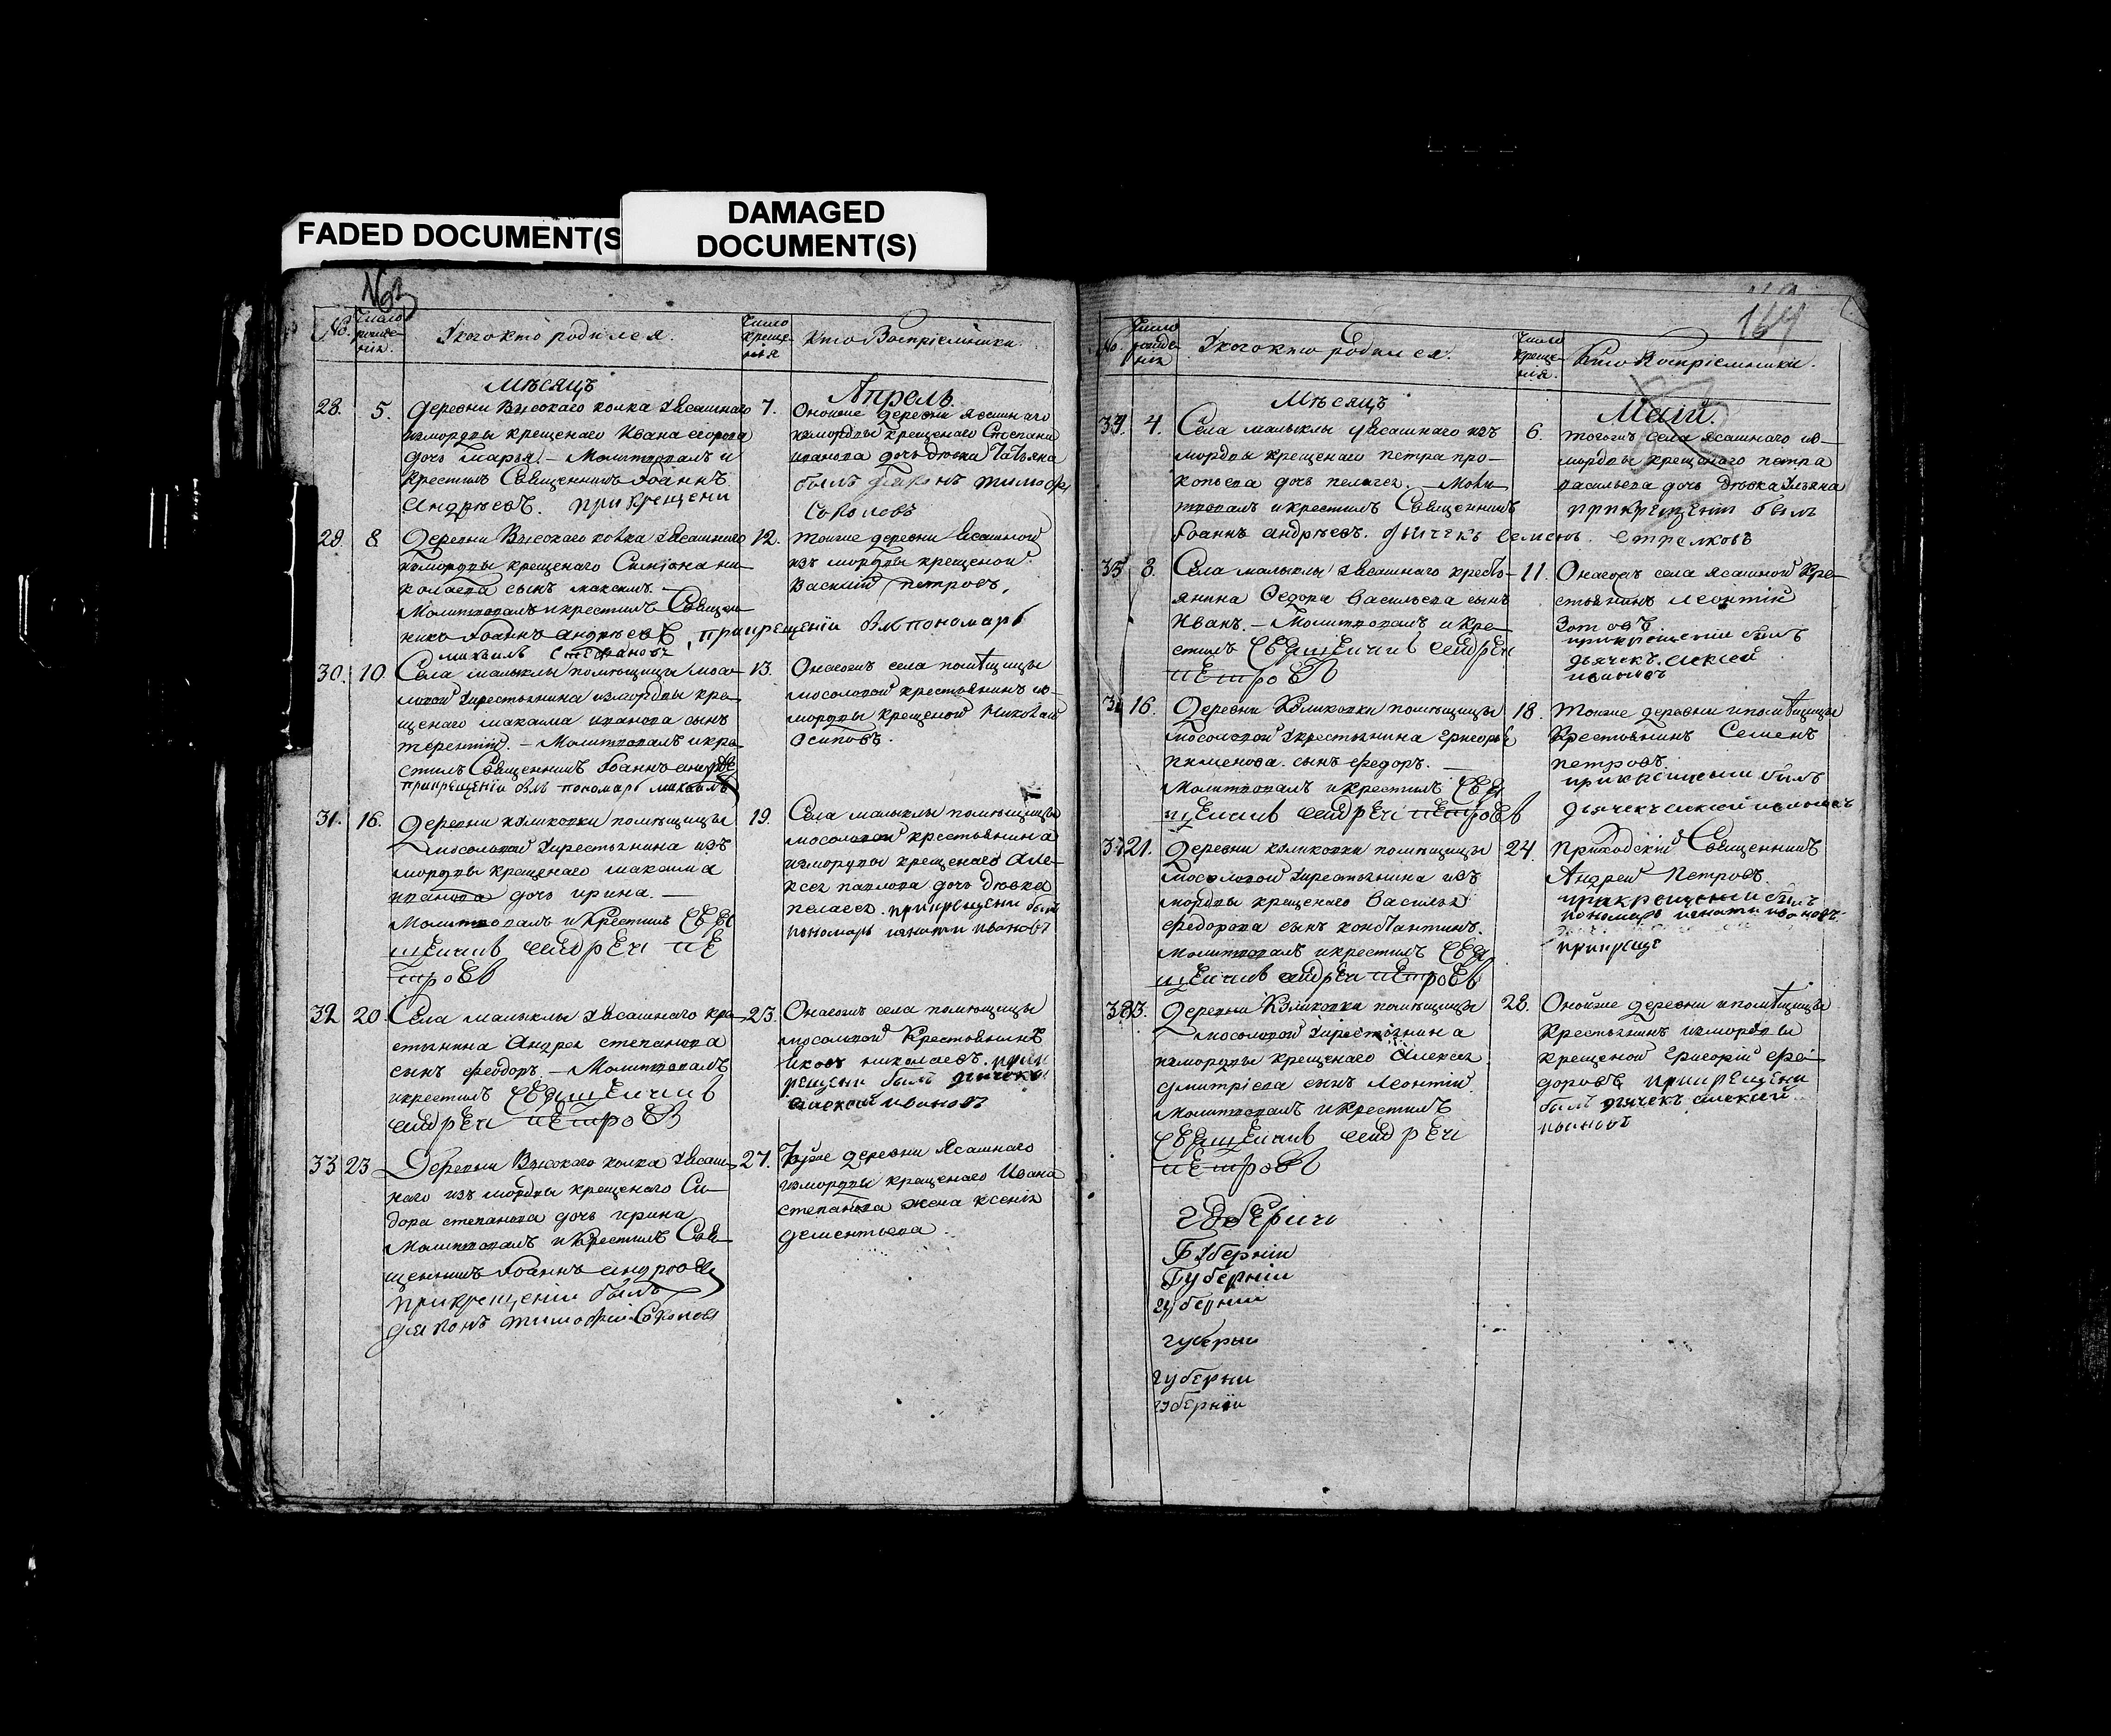 FADED DOCUMENT(S
DAMAGED
DOCUMENT(S)
163
№.
Число рожде-
нія.
У кого кто родился.
Число
креще-
нія
Кто Воспріемники.
Мѣсяцъ
Апрель.
28. 5. Деревни Высокаго колка у Ясашнаго
измордвы крещенаго Ивана егорова
дочь Марья. – Молитвовалъ и
крестилъ Священникъ Іоаннъ
Андрѣевъ. при крещени
7. Оноиже деревни ясашнаго
измордвы крещенаго Степана
иванова дочь девка Татьяна
былъ диаконъ тимофѣ
Соколовъ
29. 8. Деревни Высокаго колка у Ясашнаго
измордвы крещенаго Симіона ни-
колаева сынъ максимъ. –
Молитвовалъ и крестилъ Священ
никъ Іоаннъ андрѣевъ, прикрещеніи былъ пономарь
михаилъ Стефановъ
12. тоиже деревни Ясашной
изъ мордвы крещеной
Василий петровъ,
30. 10. Села малыклы помѣщицы мосо-
ловой у крестьянина измордвы кре-
щенаго максима иванова сынъ
терентий. – Молитвовалъ и кре-
стилъ Священникъ Іоаннъ андрѣе
прикрещеніи былъ пономарь михаилъ
13. Онагожъ села помѣщицы
мосоловой крестьянинъ из-
мордвы крещеной Николай
Осиповъ.
31. 16. Деревни куликовки помѣщицы
мосоловой у крестьянина изъ
мордвы крещенаго максима
иванова дочь ирина. –
Молитвовалъ и крестилъ СВЯ
щенникъ андрей пе
тровъ
19. Села малыклы помѣщицы
мосоловой крестьянина
измордвы крещенаго Але-
ксея павлова дочь девка
пелагея. прикрещени былъ
пономарь игнати ивановъ
32. 20. Села малыклы у Ясашнаго кре-
стьянина Андрея степанова
сынъ феодоръ. – Молитвовалъ
и крестилъ Священникъ
андрей петровъ
23. Онагожъ села помѣщицы
мосоловой Крестьянинъ
Яковъ николаевъ. прик
рещени былъ дьячекъ
алексей ивановъ
33 23 Деревни Высокаго колка у Ясаш-
наго изъ мордвы крещенаго Си-
дора степанова дочь ирина
Молитвовалъ и Крестилъ Свя-
щенникъ Іоаннъ андрѣевъ
прикрещеніи былъ
диаконъ тимофѣи Соколовъ
27. Тоиже деревни Ясашнаго
измордвы крещенаго Ивана
степанова жена ксения
дементьева.
164
№
Число
рожде
нія
У кого кто родился.
Число
креще-
нія.
Кто Воспріемники.
Мѣсяцъ
Маій.
34. 4. Села малыклы у Ясашнаго изъ
мордвы крещенаго петра про-
копьева дочь пелагея. Моли
твовалъ и крестилъ Священникъ
Іоаннъ андрѣевъ. дьячекъ семенъ. Стрелковъ
6. тогожъ села ясашнаго из-
мордвы крещенаго петра
васильева дочь девка Ульяна
прикрещеніи былъ
35 8. Села малыклы у Ясашнаго кресть-
янина Федора васильева сынъ
Иванъ. – Молитвовалъ и кре-
стилъ Священникъ андрей
петровъ
11. Онагожъ села ясашной Кре-
стьянинъ леонтий
Зотовъ
прикрещении былъ
дьячекъ алексей
ивановъ
36 16. Деревни Куликовки помѣщицы
мосоловой у крестьянина григорья
пименова. сынъ федоръ. –
Молитвовалъ и крестилъ СВЯ
щенникъ андрей петровъ
18. тоиже деревни и помѣщицы
Крестьянинъ Семенъ
петровъ.
прикрещении былъ
дьячекъ алексей ивановъ
37. 21. Деревни куликовки помѣщицы
мосоловой у крестьянина изъ
мордвы крещенаго Василья
федорова сынъ константинъ.
молитвовалъ и крестилъ СВЯ
щенникъ андрей петровъ
24. приходский Священникъ
Андрей Петровъ.
прикрещении былъ
пономарь игнати ивановъ.
прикреще
38. 23. Деревни Куликовки помѣщицы
мосоловой у крестьянина
измордвы крещенаго Алексея
дмитріева сынъ леонтий
Молитвовалъ и крестилъ
Священникъ андрей
петровъ
28. Оноиже деревни и помѣщицы
крестьянинъ измордвы
крещеной григорий фео-
доровъ прикрещени
былъ дьячекъ алексей
ивановъ
Губерніи
Губерніи
губернии
губерни
губерни
губерніи